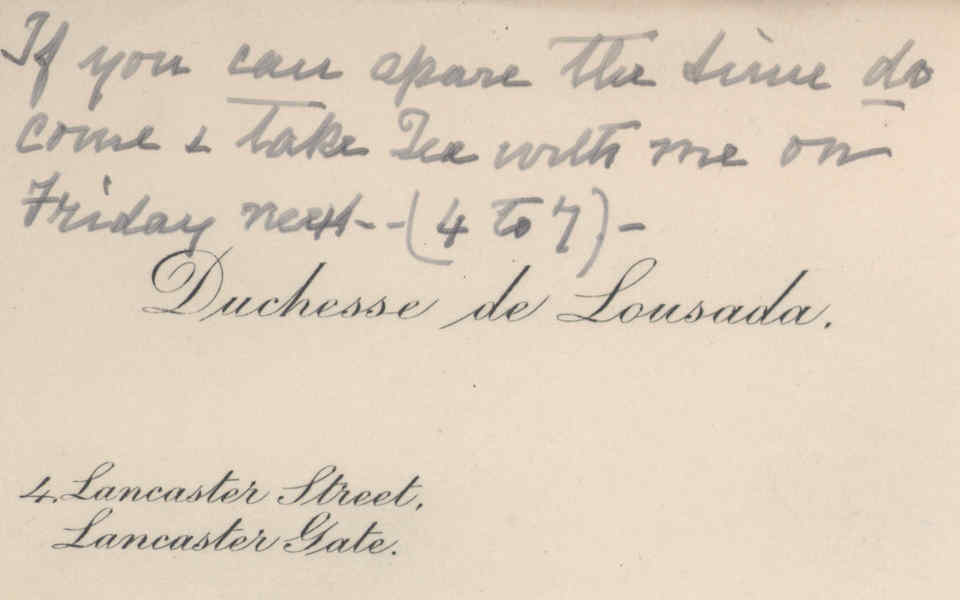 If you can spare the time do
come & take Tea with me on
Friday next - - (4 to 7) -
Duchesse de Lousada.
4, Lancaster Street,
Lancaster Gate.